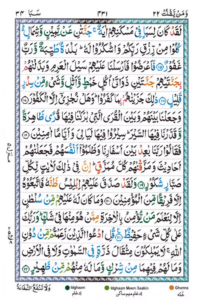 وَمَنْ يَّقْنُتْ ٢٢ ٤٣١ سَبَا ٣٤
لَقَدْ كَانَ لِسَبَاٍ فِيْ مَسْكَنِهِمْ اٰيَةٌ ۚ جَنَّتٰنِ عَنْ يَّمِيْنٍ وَّشِمَالٍ ؕ
كُلُوْا مِنْ رِّزْقِ رَبِّكُمْ وَاشْكُرُوْا لَهٗ ؕ بَلْدَةٌ طَيِّبَةٌ وَّرَبٌّ
غَفُوْرٌ ۝ فَاَعْرَضُوْا فَاَرْسَلْنَا عَلَيْهِمْ سَيْلَ الْعَرِمِ وَبَدَّلْنٰهُمْ
بِجَنَّتَيْهِمْ جَنَّتَيْنِ ذَوَاتَيْ اُكُلٍ خَمْطٍ وَّاَثْلٍ وَّشَيْءٍ مِّنْ سِدْرٍ
قَلِيْلٍ ۝ ذٰلِكَ جَزَيْنٰهُمْ بِمَا كَفَرُوْا ؕ وَهَلْ نُجٰزِيْٓ اِلَّا الْكَفُوْرَ ۝
وَجَعَلْنَا بَيْنَهُمْ وَبَيْنَ الْقُرَى الَّتِيْ بٰرَكْنَا فِيْهَا قُرًى ظَاهِرَةً
وَّقَدَّرْنَا فِيْهَا السَّيْرَ ؕ سِيْرُوْا فِيْهَا لَيَالِيَ وَاَيَّامًا اٰمِنِيْنَ ۝
فَقَالُوْا رَبَّنَا بٰعِدْ بَيْنَ اَسْفَارِنَا وَظَلَمُوْٓا اَنْفُسَهُمْ فَجَعَلْنٰهُمْ
اَحَادِيْثَ وَمَزَّقْنٰهُمْ كُلَّ مُمَزَّقٍ ؕ اِنَّ فِيْ ذٰلِكَ لَاٰيٰتٍ لِّكُلِّ
صَبَّارٍ شَكُوْرٍ ۝ وَلَقَدْ صَدَّقَ عَلَيْهِمْ اِبْلِيْسُ ظَنَّهٗ فَاتَّبَعُوْهُ
اِلَّا فَرِيْقًا مِّنَ الْمُؤْمِنِيْنَ ۝ وَمَا كَانَ لَهٗ عَلَيْهِمْ مِّنْ سُلْطٰنٍ
اِلَّا لِنَعْلَمَ مَنْ يُّؤْمِنُ بِالْاٰخِرَةِ مِمَّنْ هُوَ مِنْهَا فِيْ شَكٍّ ؕ وَرَبُّكَ
عَلٰى كُلِّ شَيْءٍ حَفِيْظٌ ۝ قُلِ ادْعُوا الَّذِيْنَ زَعَمْتُمْ مِّنْ دُوْنِ
اللّٰهِ ۚ لَا يَمْلِكُوْنَ مِثْقَالَ ذَرَّةٍ فِي السَّمٰوٰتِ وَلَا فِي الْاَرْضِ
وَمَا لَهُمْ فِيْهِمَا مِنْ شِرْكٍ وَّمَا لَهٗ مِنْهُمْ مِّنْ ظَهِيْرٍ ۝
Ikhfa
Ghunna